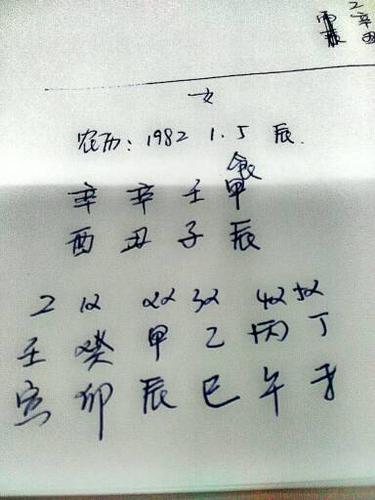 2
辛
女
农历: 1982 1.5 辰.
食
辛 辛 壬 甲
酉 丑 子 辰
2 12 22 32 42 52
壬 癸 甲 乙 丙 丁
寅 卯 辰 巳 午